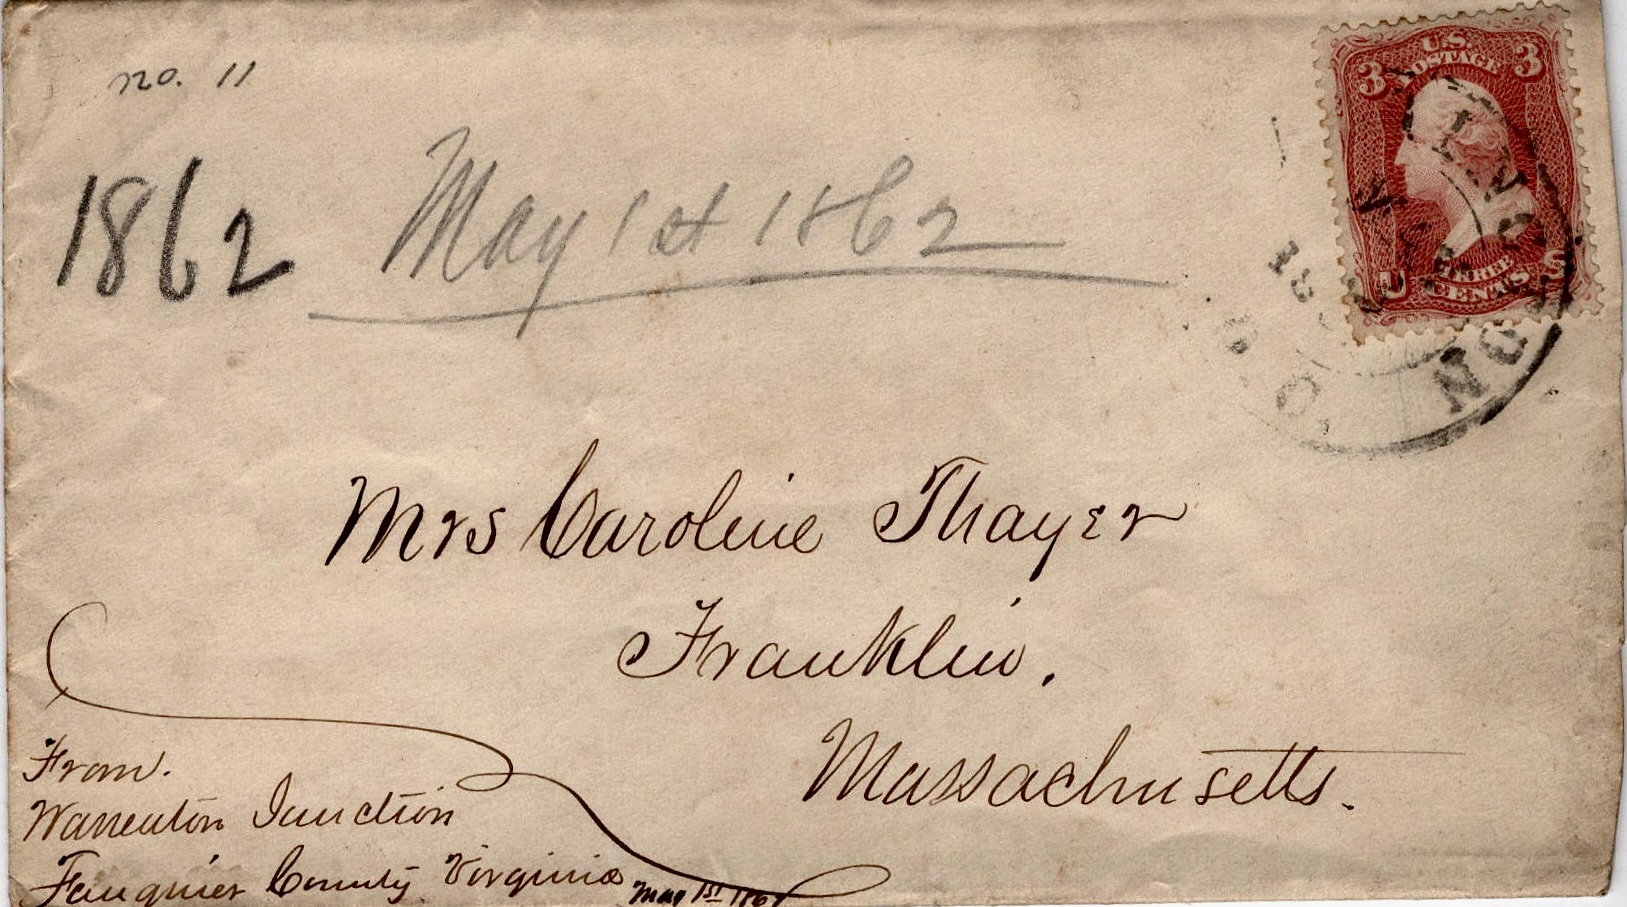 no. 11
U.S.
POSTAGE
3 3
THREE
U CENTS S
1862 May 1st 1862
Mrs Caroline Thayer
Franklin.
Massachusetts.
From.
Warrenton Junction
Fauquier County Virginia May 1st